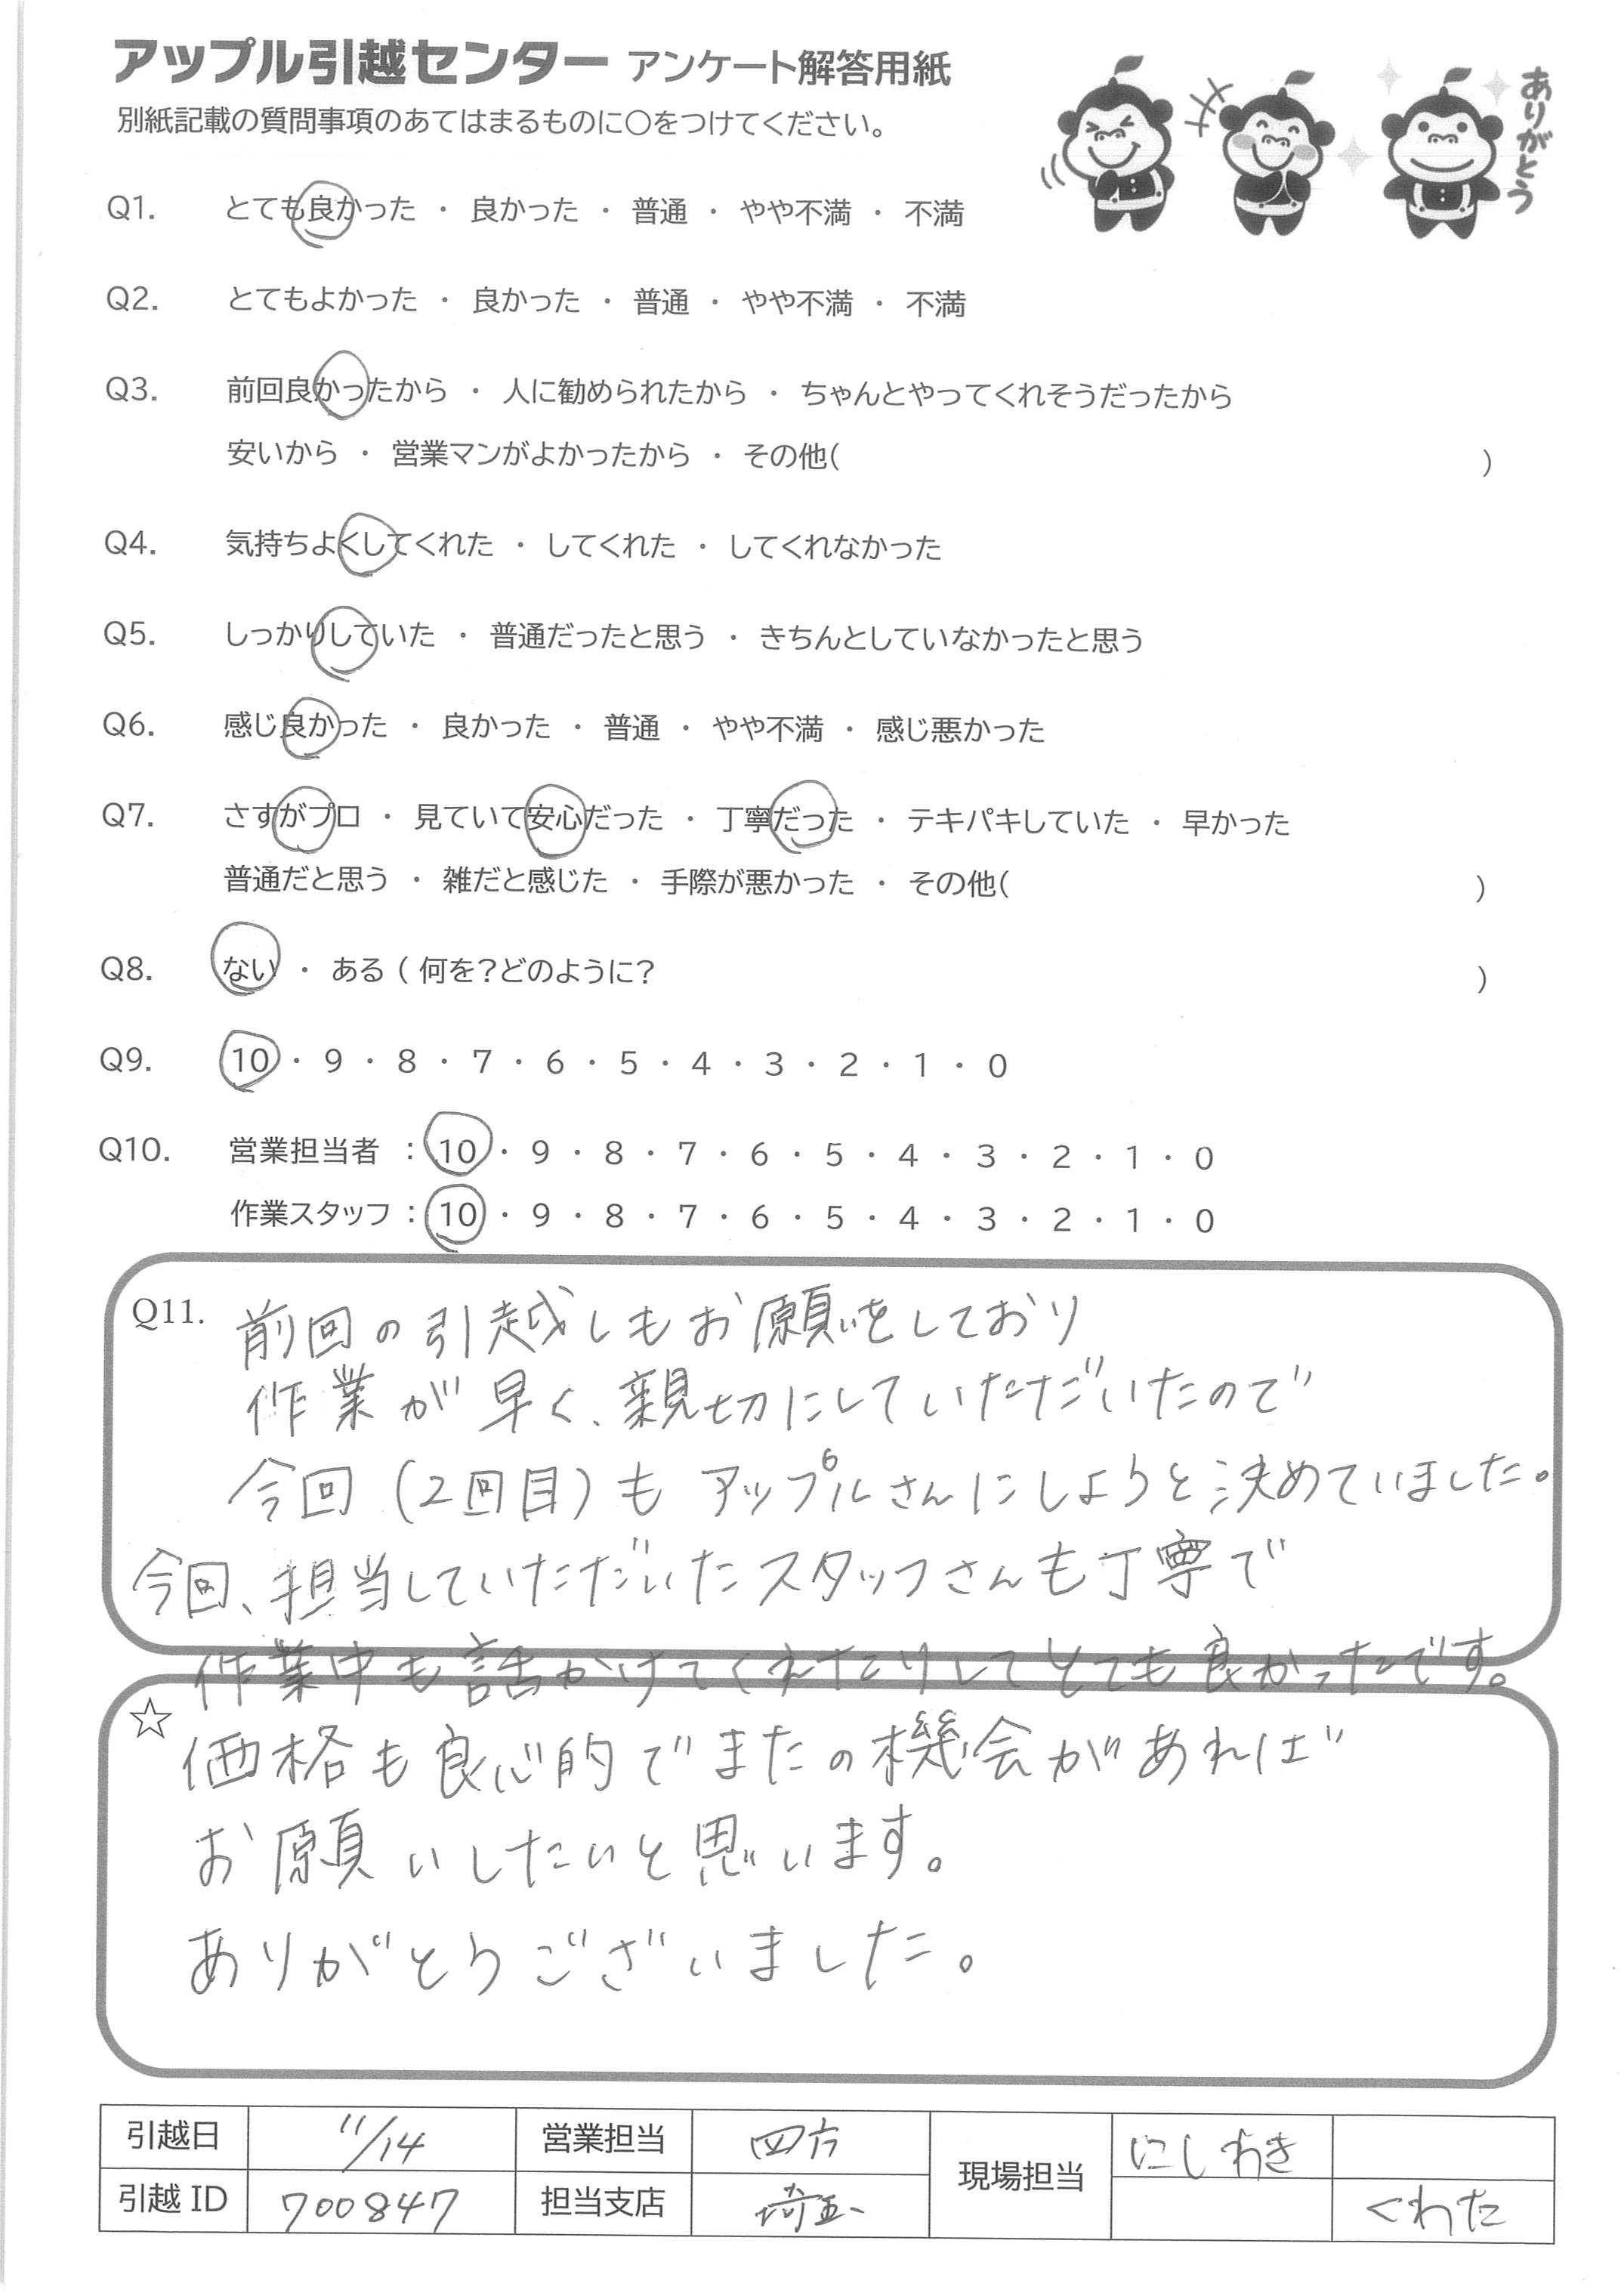 アップル引越センター アンケート解答用紙
別紙記載の質問事項のあてはまるものに○をつけてください。
ありがとう
Q1. とても良かった ・ 良かった ・ 普通 ・ やや不満 ・ 不満
Q2. とてもよかった ・ 良かった ・ 普通 ・ やや不満 ・ 不満
Q3. 前回良かったから ・ 人に勧められたから ・ ちゃんとやってくれそうだったから
安いから ・ 営業マンがよかったから ・ その他( )
Q4. 気持ちよくしてくれた ・ してくれた ・ してくれなかった
Q5. しっかりしていた ・ 普通だったと思う ・ きちんとしていなかったと思う
Q6. 感じ良かった ・ 良かった ・ 普通 ・ やや不満 ・ 感じ悪かった
Q7. さすがプロ ・ 見ていて安心だった ・ 丁寧だった ・ テキパキしていた ・ 早かった
普通だと思う ・ 雑だと感じた ・ 手際が悪かった ・ その他( )
Q8. ない ・ ある ( 何を?どのように? )
Q9. 10 ・ 9 ・ 8 ・ 7 ・ 6 ・ 5 ・ 4 ・ 3 ・ 2 ・ 1 ・ 0
Q10. 営業担当者 : 10 ・ 9 ・ 8 ・ 7 ・ 6 ・ 5 ・ 4 ・ 3 ・ 2 ・ 1 ・ 0
作業スタッフ : 10 ・ 9 ・ 8 ・ 7 ・ 6 ・ 5 ・ 4 ・ 3 ・ 2 ・ 1 ・ 0
Q11. 前回の引越しもお願いをしており
作業が早く、親切にしていただいたので
今回(2回目)も アップルさんにしようと決めていました。
今回、担当していただいたスタッフさんも丁寧で
作業中も話かけてくれたりしてとても良かったです。
☆ 価格も良心的でまたの機会があれば
お願いしたいと思います。
ありがとうございました。
引越日 11/14 営業担当 四方 現場担当 にしわき
引越ID 700847 担当支店 埼玉 くわた